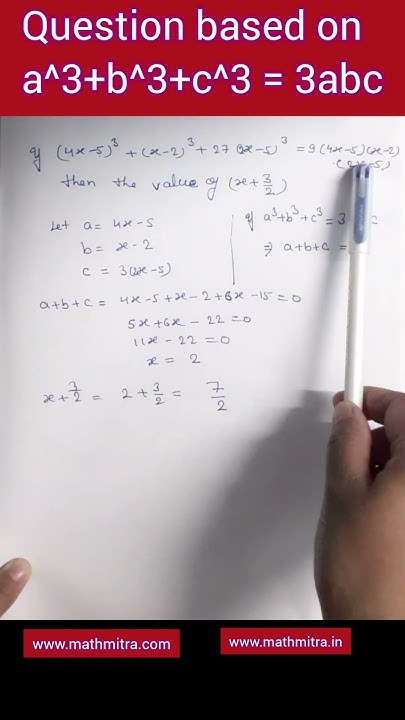 Question based on
a^3+b^3+c^3 = 3abc
If (4x-5)³ + (x-2)³ + 27(2x-5)³ = 9(4x-5)(x-2)
(2x-5)
then the value of (x+3/2)
Let a = 4x-5
b = x-2
c = 3(2x-5)
If a³+b³+c³ = 3 c
⇒ a+b+c =
a+b+c = 4x-5+x-2+6x-15=0
5x+6x-22=0
11x-22=0
x = 2
x+3/2 = 2+3/2 = 7/2
www.mathmitra.com
www.mathmitra.in